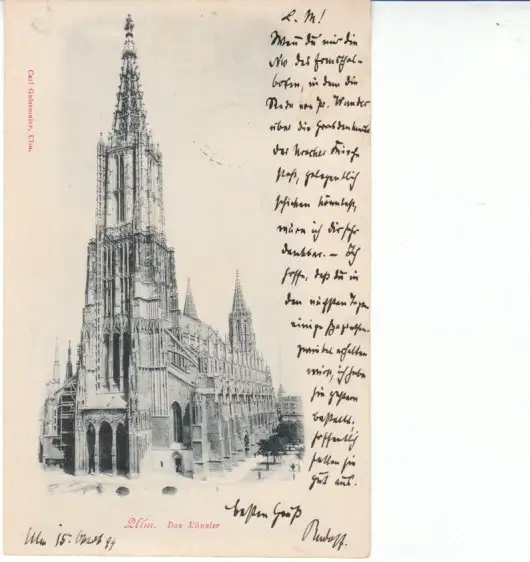 L. M!
Wenn du mir die
No des
bofen, in dem die
Rede von Pr.
über die Grabdenkmale
der Kirche
steht, gelegentlich
schicken könntest,
wäre ich dir sehr
dankbar. – Ich
hoffe, daß du in
den nächsten Tagen
einige
erhalten
wirst, ich habe
sie gestern
bestellt,
hoffentlich
fallen sie
gut aus.
besten Gruß
Rudolf.
Carl Gaissmaier, Ulm.
Ulm. Das Münster
Ulm 15. 99